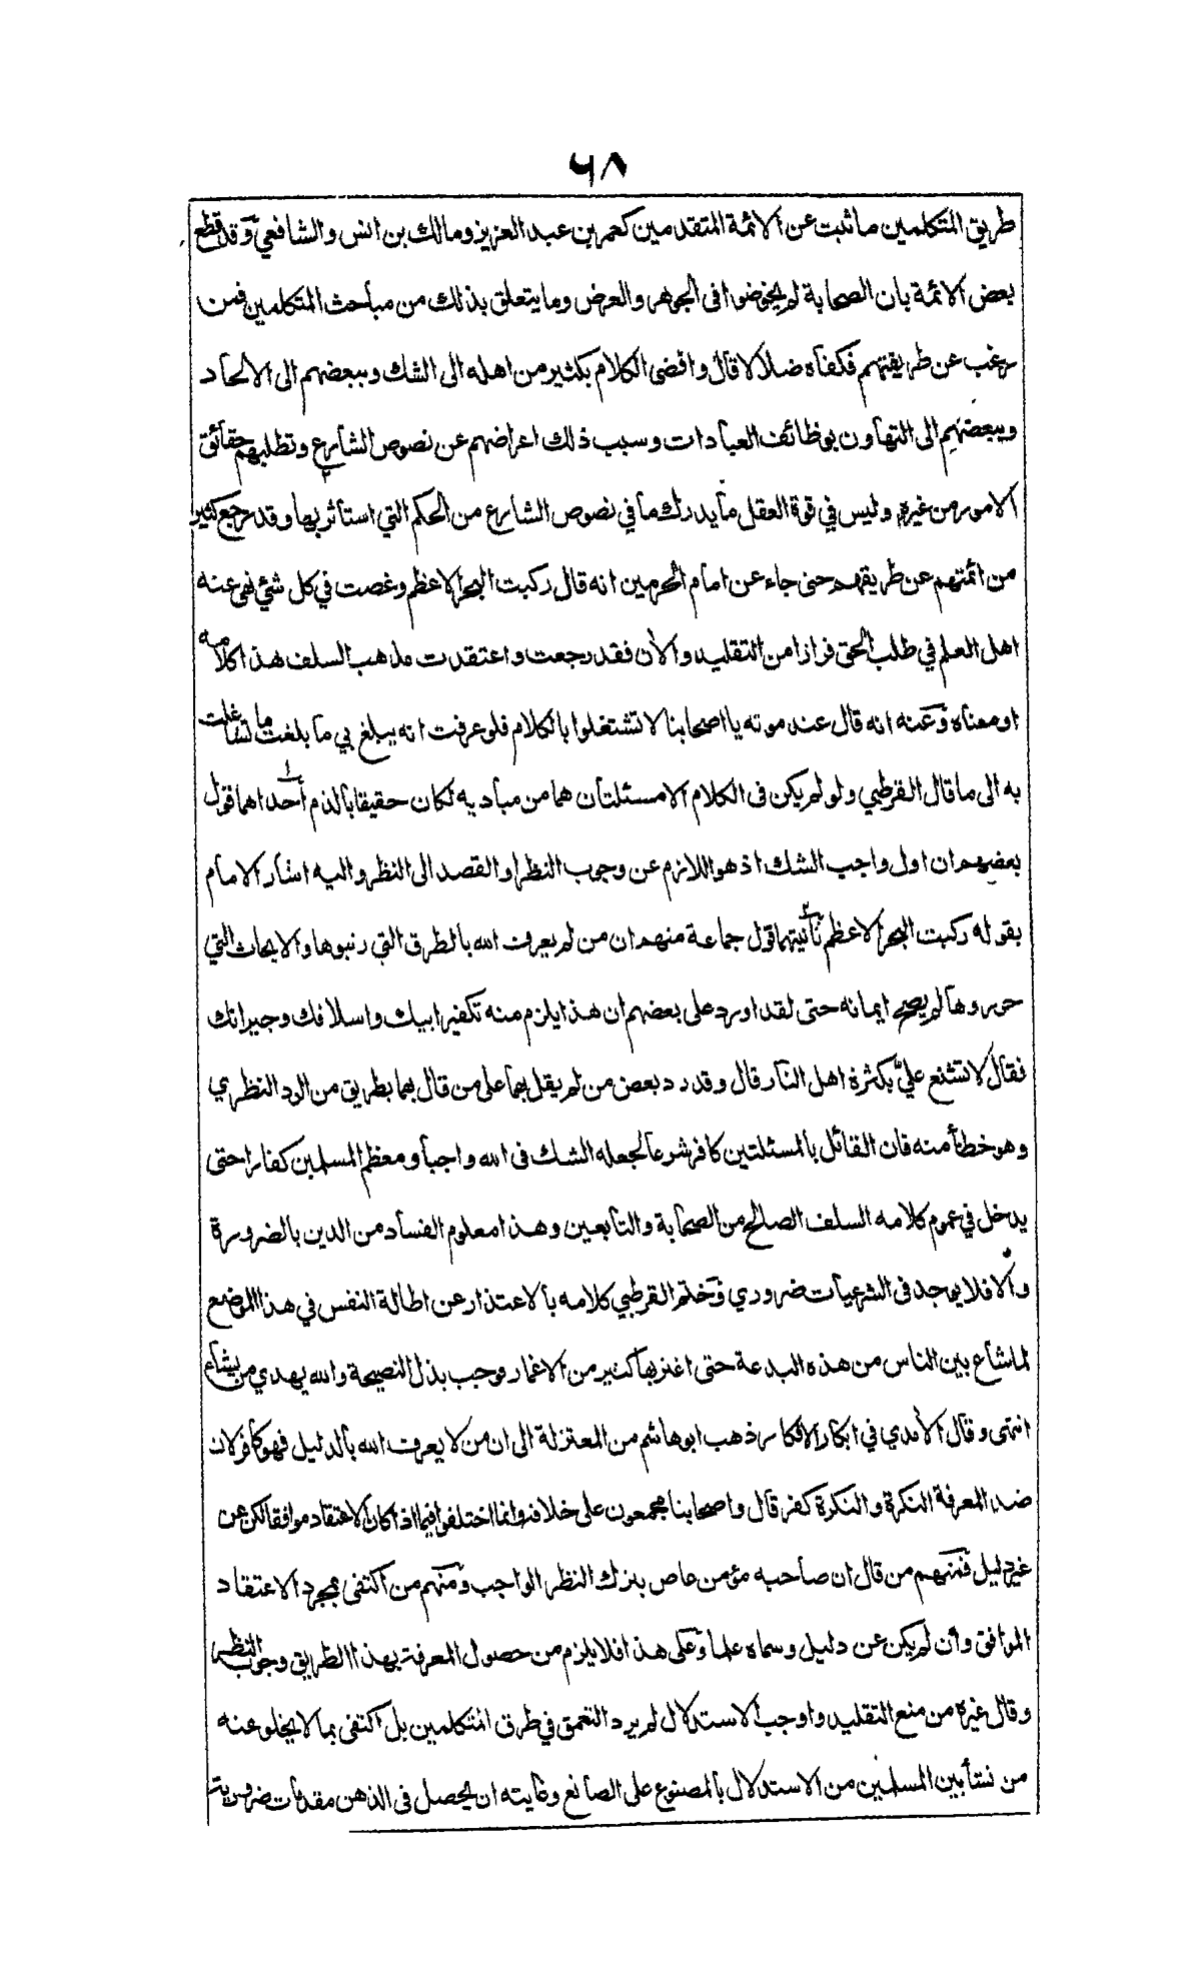 ٦٨
طريق المتكلمين ما ثبت عن الائمة المتقدمين كعمر بن عبد العزيز ومالك بن انس والشافعي وقد قطع
بعض الائمة بان الصحابة لم يخوضوا فى الجوهر والعرض وما يتعلق بذلك من مباحث المتكلمين فمن
رغب عن طريقتهم فكفاه ضلالا قال وافضى الكلام بكثير من اهله الى الشك وببعضهم الى الالحاد
وببعضهم الى التهاون بوظائف العبادات وسبب ذلك اعراضهم عن نصوص الشارع وتطلبهم حقائق
الامور من غيره وليس في قوة العقل ما يدرك ما في نصوص الشارع من الحكم التي استأثر بها وقد رجع كثير
من ائمتهم عن طريقهم حتى جاء عن امام الحرمين انه قال ركبت البحر الاعظم وغصت في كل شئ نهى عنه
اهل العلم في طلب الحق فرارا من التقليد والأن فقد رجعت واعتقدت مذهب السلف هذا كلامه
او معناه وعنه انه قال عند موته يا اصحابنا لا تشتغلوا بالكلام فلو عرفت انه يبلغ بي ما بلغت ما تشاغلت
به الى ما قال القرطبي ولو لم يكن فى الكلام الا مسئلتان هما من مباديه لكان حقيقا بالذم أحداهما قول
بعضهم ان اول واجب الشك اذ هو اللازم عن وجوب النظر او القصد الى النظر واليه اشار الامام
بقوله ركبت البحر الاعظم ثانيتهما قول جماعة منهم ان من لم يعرف الله بالطرق التي رتبوها والابحاث التي
حرروها لم يصح ايمانه حتى لقد اورد على بعضهم ان هذا يلزم منه تكفير ابيك واسلافك وجيرانك
فقال لا تشنع عليّ بكثرة اهل النار قال وقد رد بعض من لم يقل بهما على من قال بهما بطريق من الرد النظري
وهو خطأ منه فان القائل بالمسئلتين كافر شرعا لجعله الشك فى الله واجبا ومعظم المسلمين كفارا حتى
يدخل في عموم كلامه السلف الصالح من الصحابة والتابعين وهذا معلوم الفساد من الدين بالضرورة
والا فلا يوجد فى الشرعيات ضروري وختم القرطبي كلامه بالاعتذار عن اطالة النفس في هذا الموضع
لما شاع بين الناس من هذه البدعة حتى اغتر بها كثير من الاغمار فوجب بذل النصيحة والله يهدي من يشاء
انتهى وقال الأمدي في ابكار الافكار ذهب ابو هاشم من المعتزلة الى ان من لا يعرف الله بالدليل فهو كافر لان
ضد المعرفة النكرة والنكرة كفر قال واصحابنا مجمعون على خلافه وانما اختلفوا فيما اذا كان الاعتقاد موافقا لكن عن
غير دليل فمنهم من قال ان صاحبه مؤمن عاص بترك النظر الواجب ومنهم من اكتفى بمجرد الاعتقاد
الموافق وان لم يكن عن دليل وسماه علما وعلى هذا فلا يلزم من حصول المعرفة بهذا الطريق وجوب النظر
وقال غيره من منع التقليد واوجب الاستدلال لم يرد التعمق في طرق المتكلمين بل اكتفى بما لا يخلو عنه
من نشأ بين المسلمين من الاستدلال بالمصنوع على الصانع وغايته ان يحصل فى الذهن مقدمات ضرورية